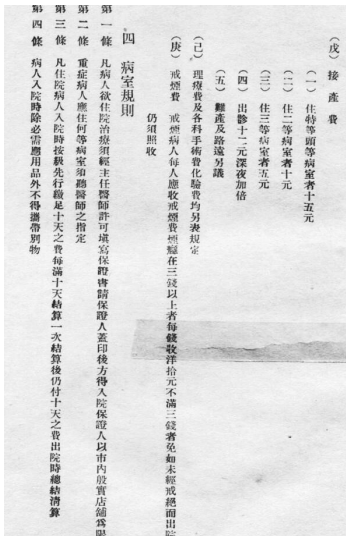 (戊)接產費
(一)住特等頭等病室者十五元
(二)住二等病室者十元
(三)住三等病室者五元
(四)出診十二元深夜加倍
(五)難產及路遠另議
(己)理療費及各科手術費化驗費均另表規定
(庚)戒煙費 戒煙病人每人應收戒煙費煙癮在三錢以上者每錢收洋拾元不滿三錢者免如未經戒絕而出院
仍須照收
四 病室規則
第一條 凡病人欲住院治療須經主任醫師許可填寫保證書請保證人蓋印後方得入院保證人以市內殷實店舖為限
第二條 重症病人應住何等病室須聽醫師之指定
第三條 凡住院病人入院時按級先行繳足十天之費每滿十天結算一次結算後仍付十天之費出院時總結清算
第四條 病人入院時除必需應用品外不得攜帶別物